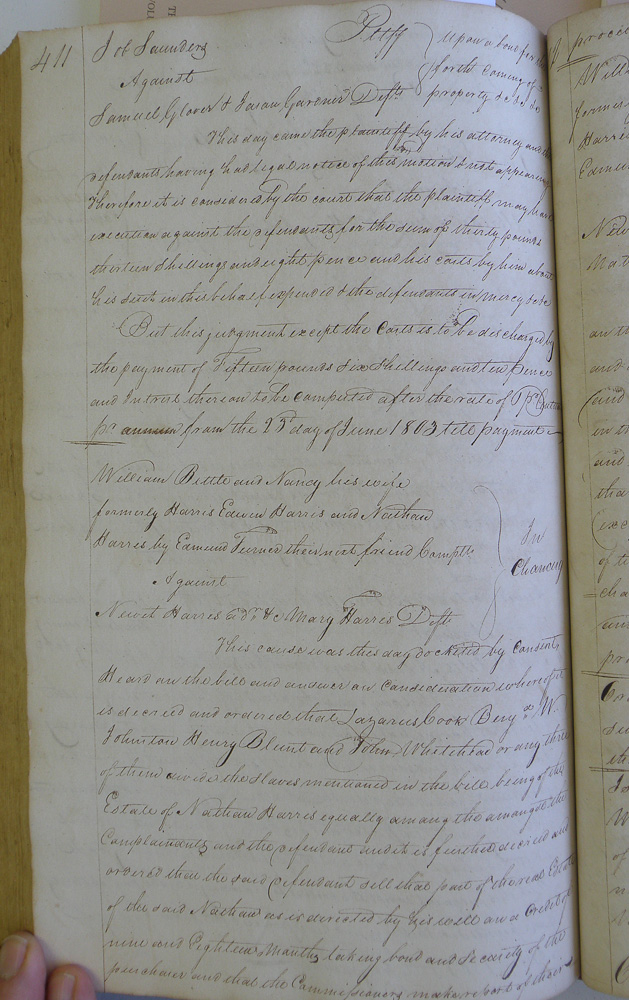 411
Job Saunders Pltff Upon a bond for the
Against forth coming of
Samuel Glover & Jason Gardner Defts property &c &c &c
This day came the plaintiff by his attorney and the
defendants having had legal notice of this motion & not appearing
Therefore it is considered by the court that the plaintiff may have
execution against the defendants for the sum of thirty pounds
thirteen shillings and eight pence and his costs by him about
his suit in this behalf expended & the defendants in mercy &c &c
But this judgment except the costs is to be discharged by
the payment of Fifteen pounds six shillings and ten pence
and Intrest thereon to be computed after the rate of
pr annum from the 23d day of June 1803 till payment
William Bittle and Nancy his wife
formerly Harris Edwin Harris and Nathan
Harris by Edmund Turner their next friend Complts
In
Chancery
Against
Newit Harris &c Mary Harris Defts
This cause was this day docketed by Consent &
Heard on the bill and answer on Consideration whereof it
is decreed and ordered that Lazarus Cook Benj W.
Johnston Henry Blunt and John Whitehead or any three
of them divide the slaves mentioned in the bill being of the
Estate of Nathan Harris equally among the amongst the
Complainants and the defendant and it is further decreed and
ordered that the said Defendant sell that part of the real Estate
of the said Nathan as is directed by his will on a Credit of
nine and Eighteen Months taking bond and Security of the
purchaser and that the Commissioners make report of their